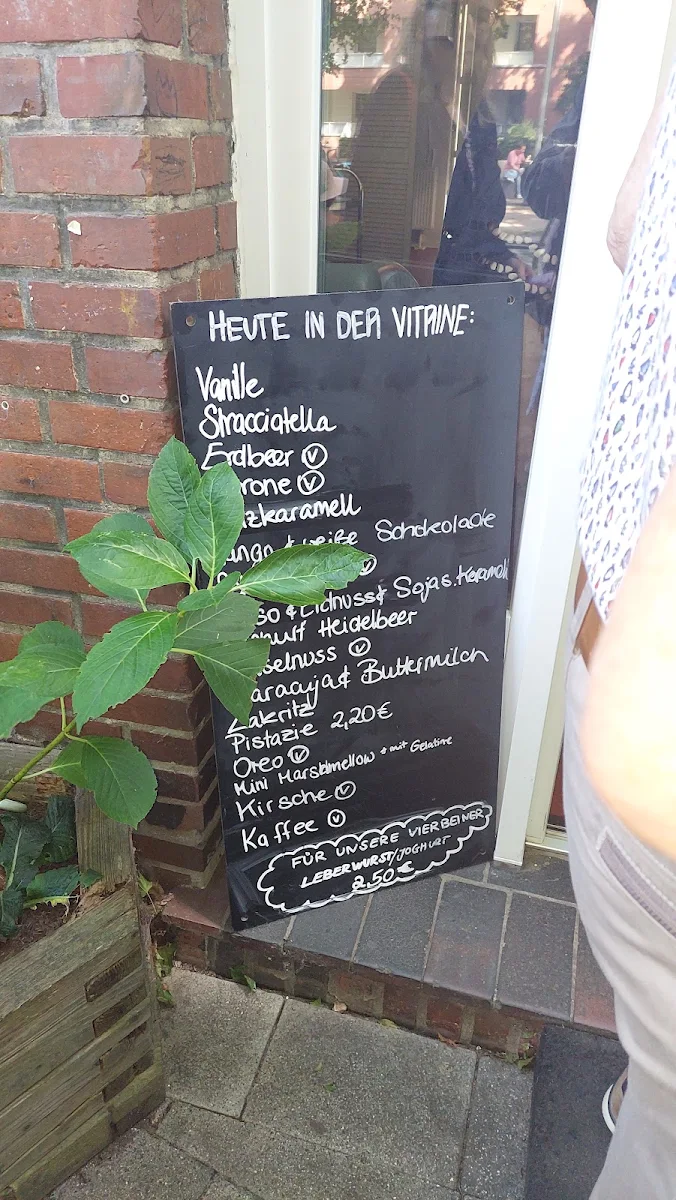 HEUTE IN DER VITRINE:
Vanille
Stracciatella
Erdbeer Ⓥ
rone Ⓥ
zkaramell
ango & weiße Schokolade
Ⓥ
so & Erdnuss & Sojas. Karamell
ghurt Heidelbeer
selnuss Ⓥ
aracuja & Buttermilch
Lakritz
Pistazie 2,20€
Oreo Ⓥ
Mini Marshmellow * mit Gelatine
Kirsche Ⓥ
Kaffee Ⓥ
FÜR UNSERE VIERBEINER
LEBERWURST/JOGHURT
2,50 €